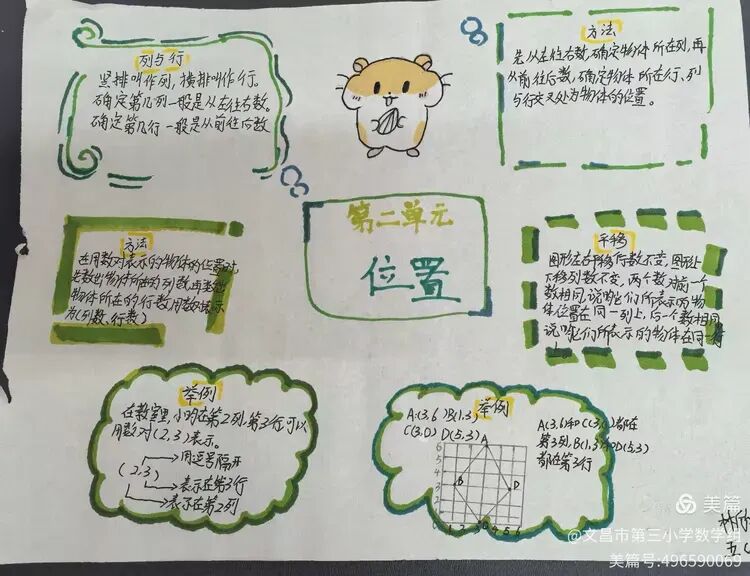 列与行
竖排叫作列，横排叫作行。
确定第几列一般是从左往右数。
确定第几行一般是从前往后数
方法
先从左往右数，确定物体所在列，再
从前往后数，确定物体所在行、列
与行交叉处为物体的位置。
第二单元
位置
方法
在用数对表示的物体的位置时，
先数出物体所在的列数，再数出
物体所在的行数，用数对表示
为(列数、行数)
平移
图形左右平移行数不变，图形上
下移列数不变，两个数对前一个
数相同，说明它们所表示的物
体位置在同一列上，后一个数相同
说明它们所表示的物体在同一行
上
举例
在教室里，小明在第2列，第3行可以
用数对(2,3)表示。
(2,3)
用逗号隔开
表示在第3行
表示在第2列
举例
A(3,6)B(1,3)
C(3,0)D(5,3)
A(3,6)和C(3,0)都在
第3列，B(1,3)和D(5,3)
都在第3行
A
B
D
美篇
@文昌市第三小学数学组
美篇号:496590069